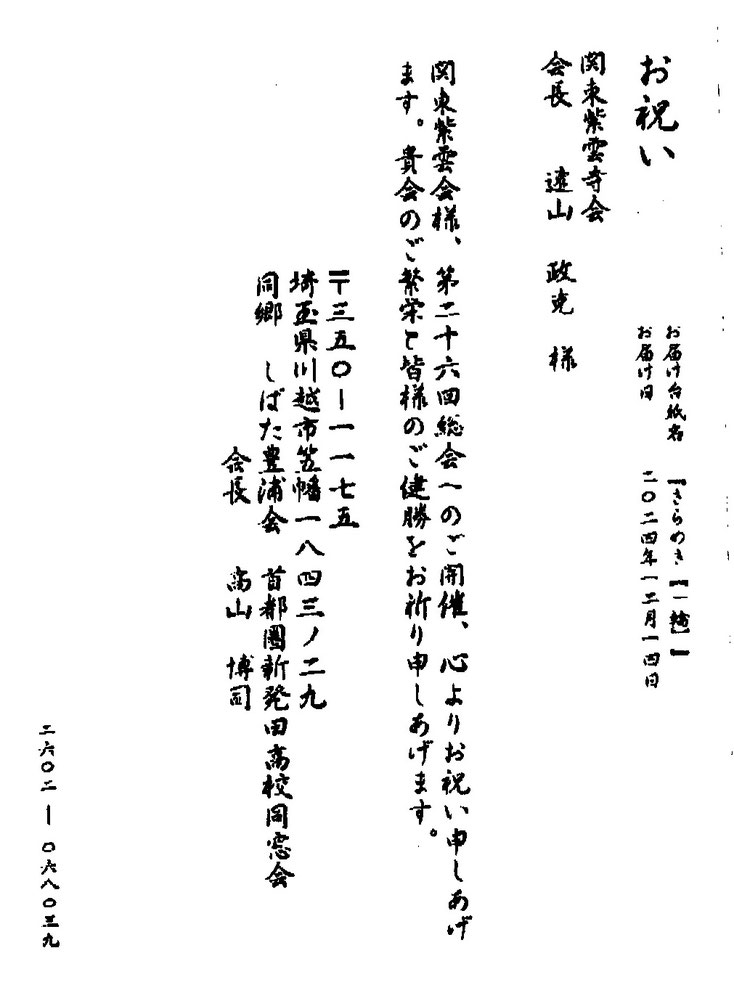 お祝い
お届け台紙名 『きらめき【一輪】』
お届け日 二〇二四年一二月一四日
関東紫雲寺会
会長 遠山 政克 様
関東紫雲会様、第二十六回総会へのご開催、心よりお祝い申しあげ
ます。貴会のご繁栄と皆様のご健勝をお祈り申しあげます。
〒三五〇ー一一七五
埼玉県川越市笠幡一八四三ノ二九
同郷 しばた豊浦会 首都圏新発田高校同窓会
会長 高山 博司
二六〇二ー〇六八〇三九